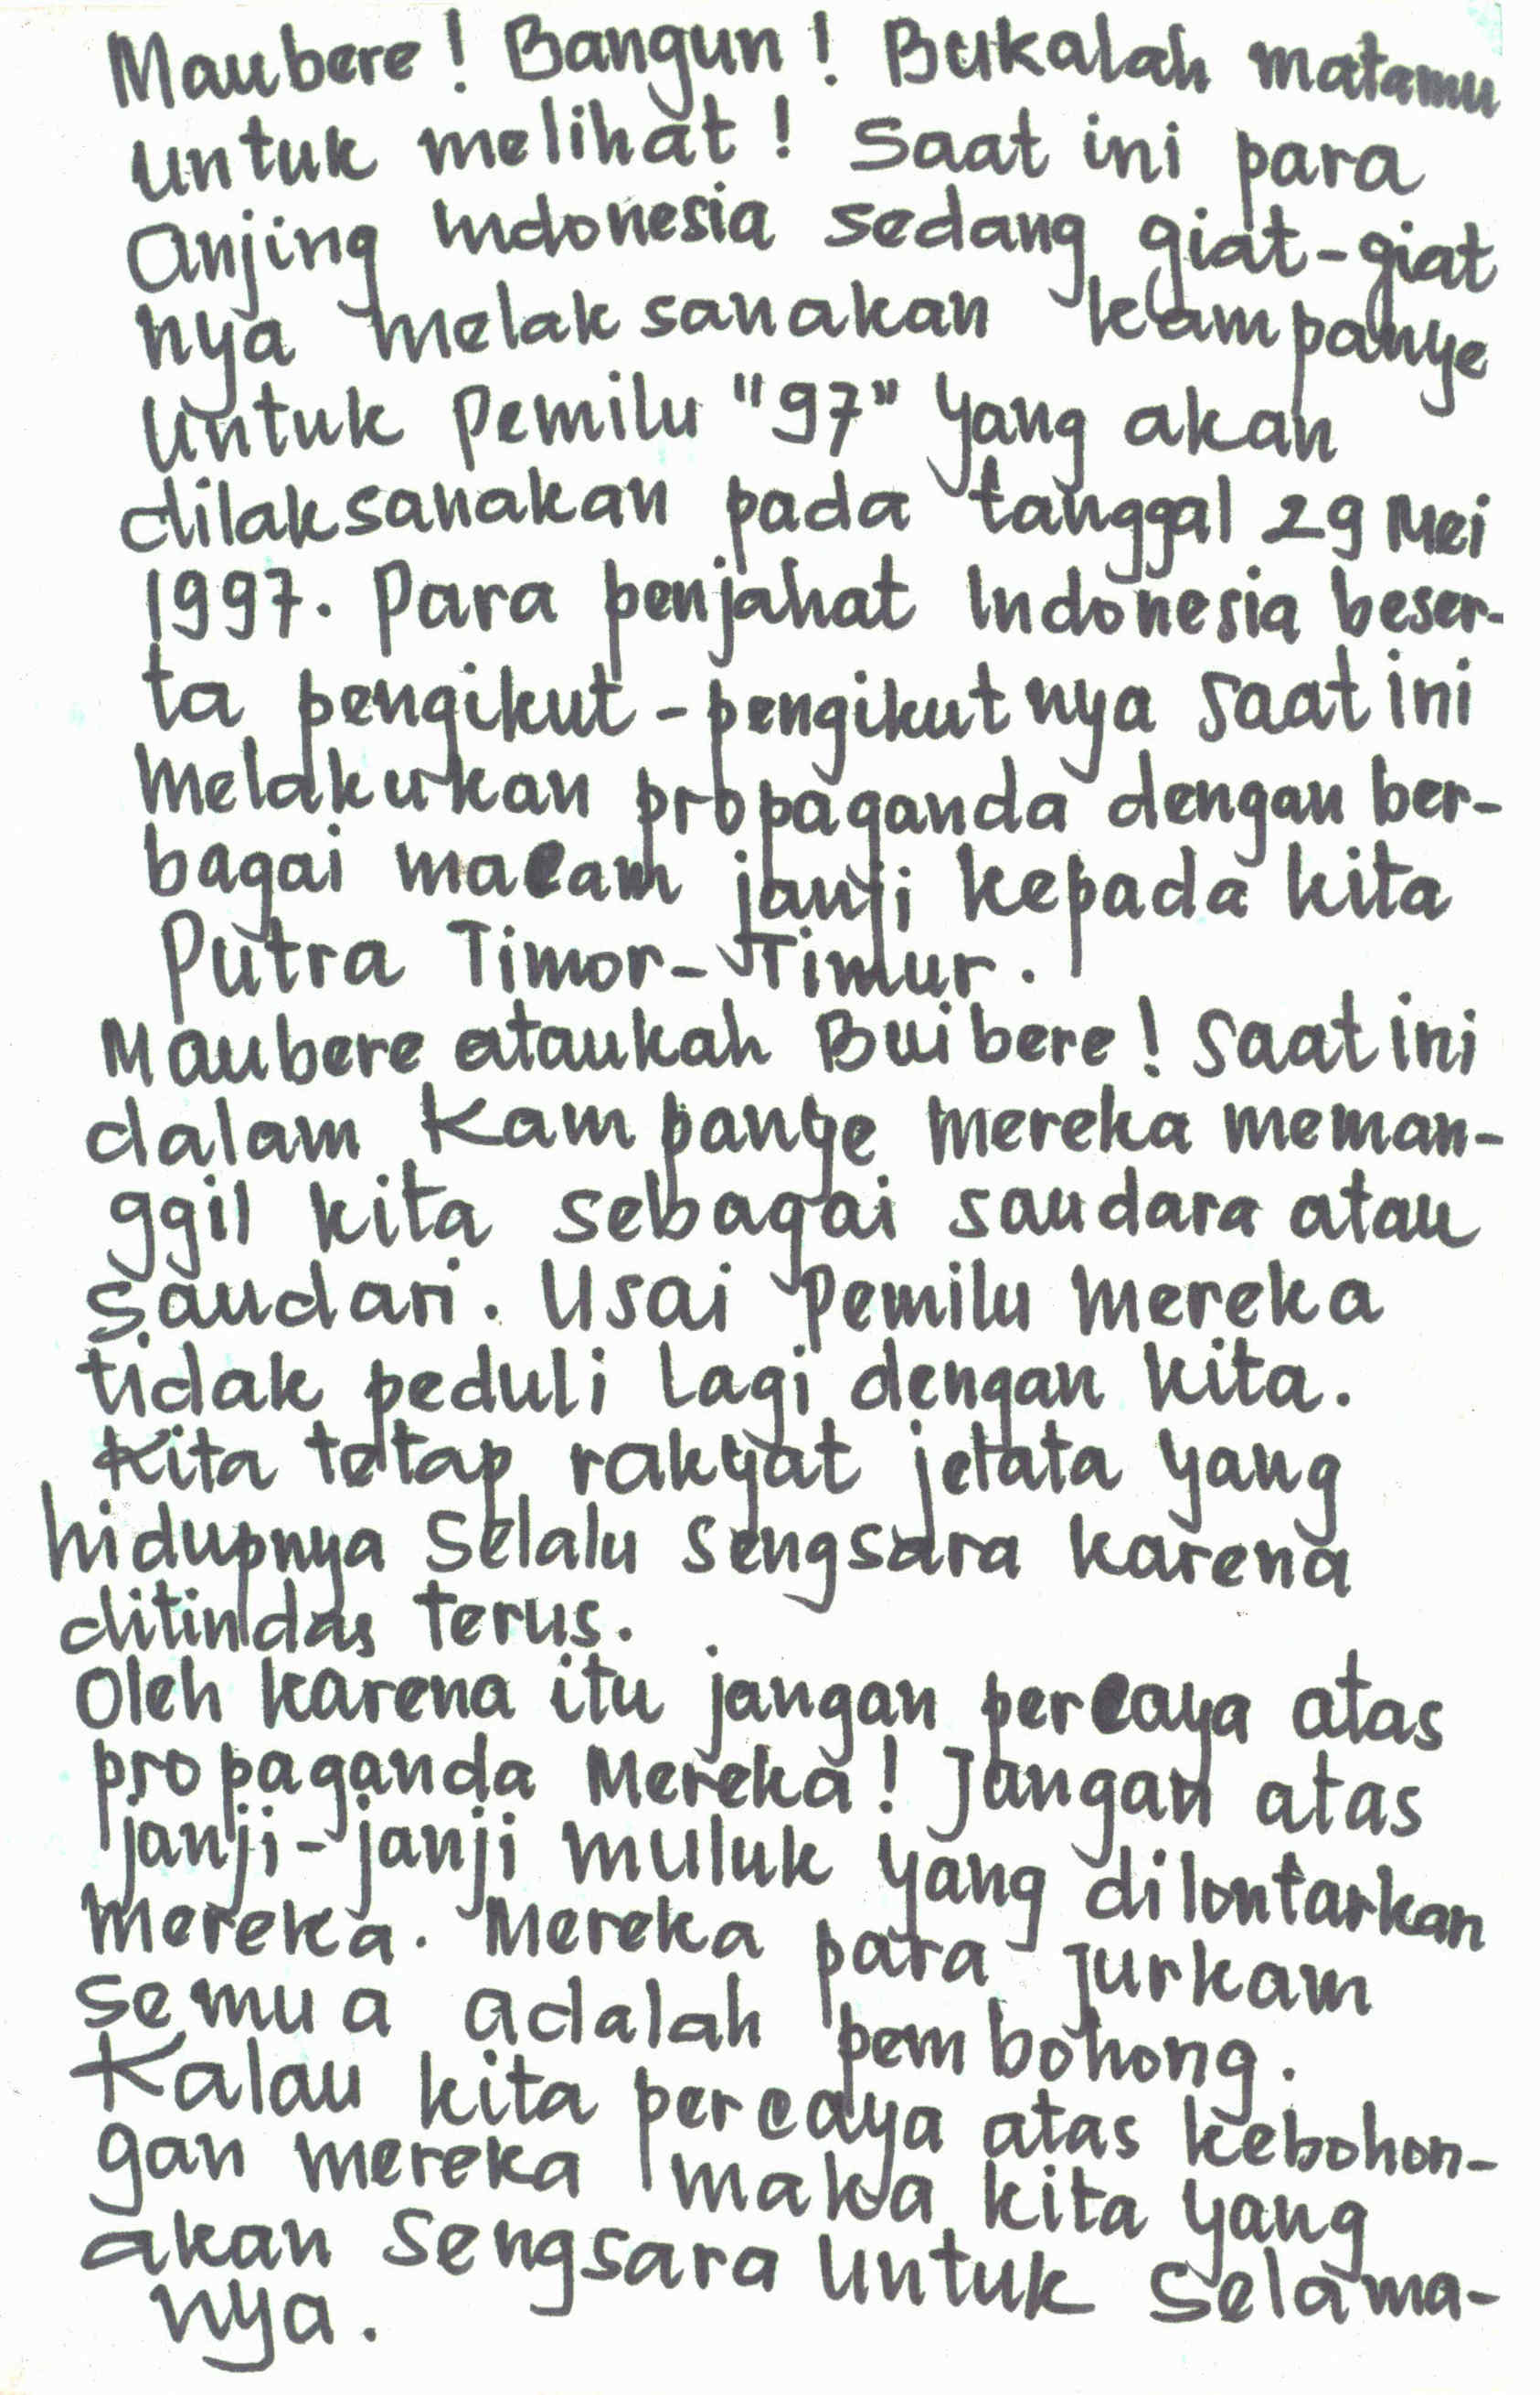 Maubere! Bangun! Bukalah matamu
untuk melihat! Saat ini para
Anjing Indonesia sedang giat-giat
nya melaksanakan kampanye
untuk Pemilu "97" yang akan
dilaksanakan pada tanggal 29 Mei
1997. Para penjahat Indonesia beser-
ta pengikut-pengikutnya saat ini
melakukan propaganda dengan ber-
bagai macam janji kepada kita
Putra Timor-Timur.
Maubere ataukah Buibere! Saat ini
dalam kampanye mereka meman-
ggil kita sebagai saudara atau
saudari. Usai Pemilu mereka
tidak peduli lagi dengan kita.
Kita tetap rakyat jelata yang
hidupnya selalu sengsara karena
ditindas terus.
Oleh karena itu jangan percaya atas
propaganda Mereka! Jangan atas
janji-janji muluk yang dilontarkan
mereka. Mereka para jurkam
semua adalah pembohong.
Kalau kita percaya atas kebohon-
gan mereka maka kita yang
akan sengsara untuk selama-
nya.